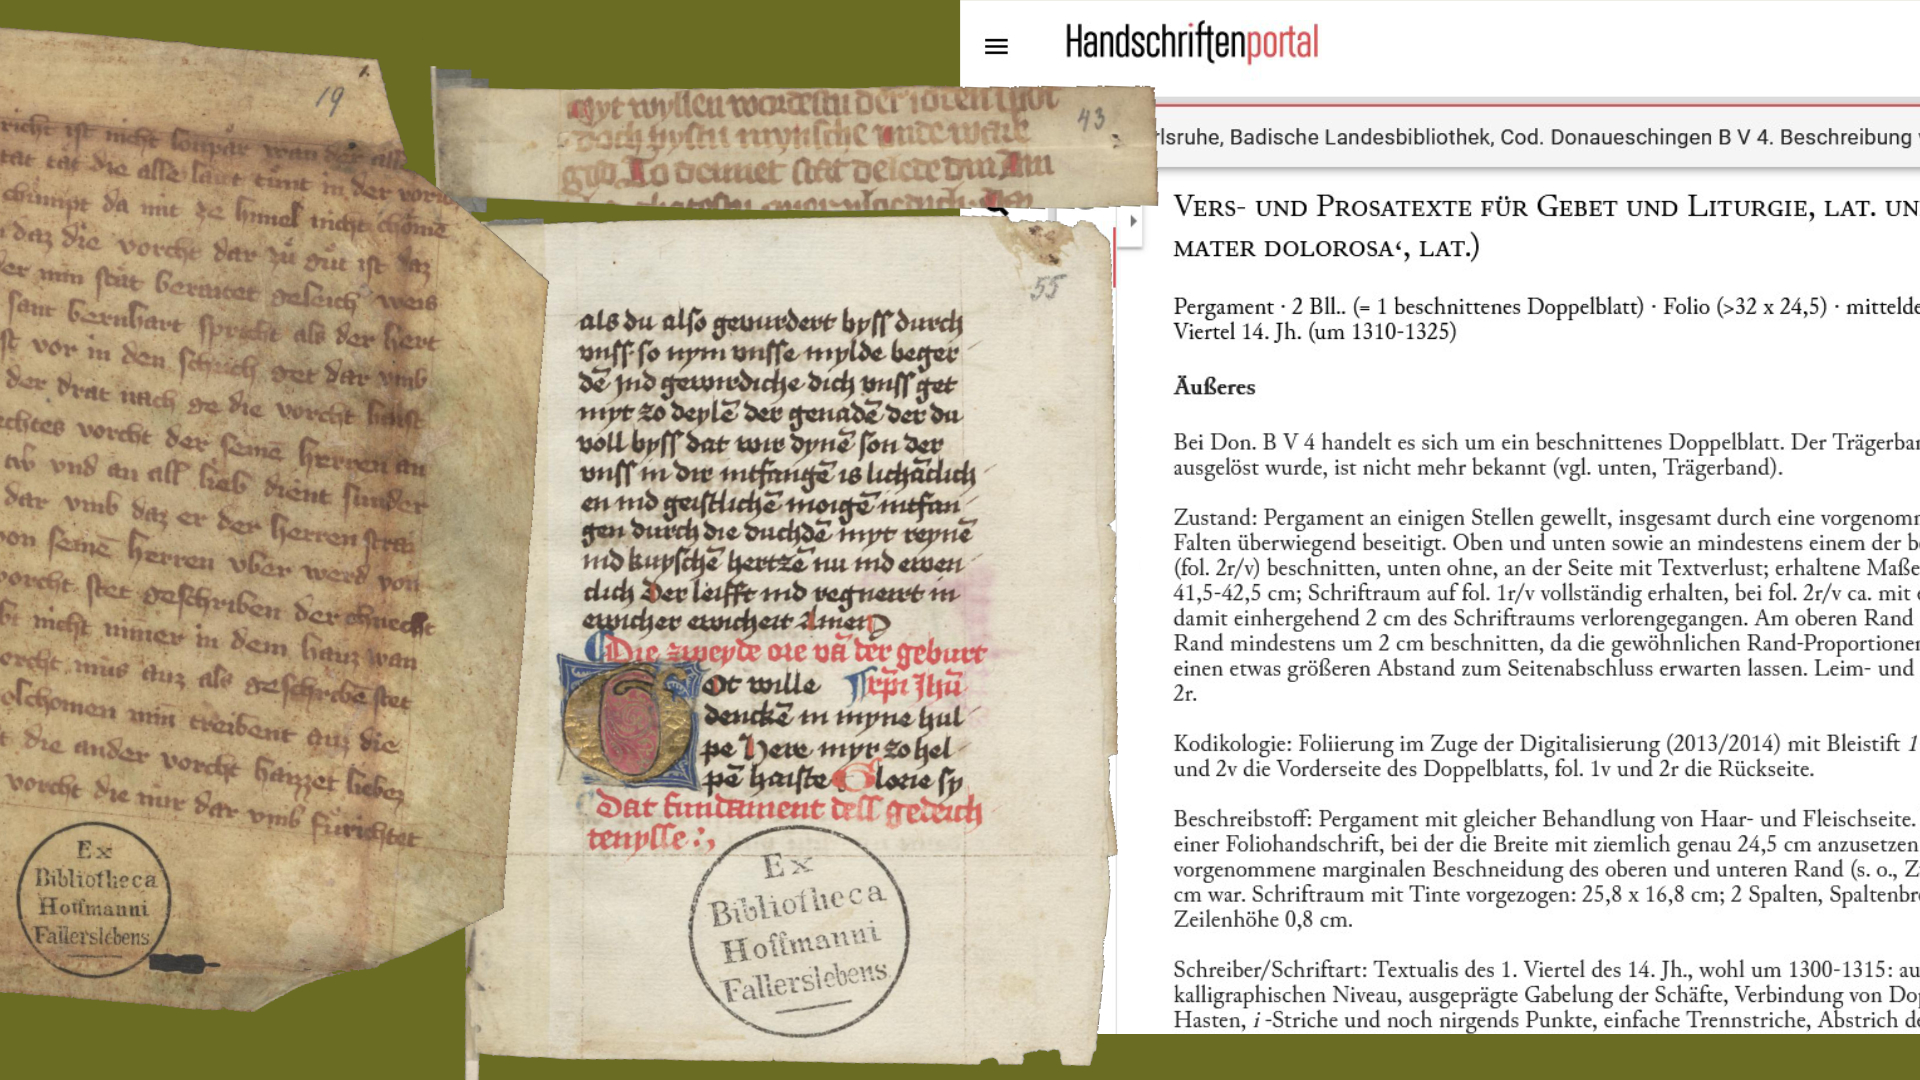 19
richt ist nicht
tat tät die alle laut tunt in der vorcht
chumpt da mit ze himel nicht chome
daz die vorcht dar zu gut ist daz
er min stät beraitet geleich weis
sant bernhart spricht als der hert
st vor in den schrich get dar vmb
der drat nach ge die vorcht haist
echtes vorcht der seinē herren an
tw vnd an all lieb dient sunder
dar vmb daz er der herren
von seinē herren vber werd von
vorcht stet geschriben der chnecht
nicht nimer in dem hauz wan
vorcht mus auz als geschribē stet
olchomen min treibent auz die
die ander vorcht haizzet lieber
vorcht die nur dar vmb furichtet
Ex
Bibliotheca
Hoffmanni
Fallerslebens
43
Myt wyllen wordestu der ioden spot
doch bystu mynsche vnde ware
god To deinet
55
als du also gewirdert byss durch
vnss so nym vnsse mylde beger
dē ind gewirdiche dich vnss get
myt zo deylē der genadē der du
voll byss dat wir dynē son der
vnss in dir intfangē is lichāclich
en ind geistlichē moigē intfan
gen durch die duchdē myt reynē
ind kuyschē hertzē nu ind ewen
clich Der leifft ind regneirt in
ewicher ewicheit Amen
Die zweyde ore vā der geburt
Got wille xp̄i Jhū
denckē in myne hul
pe Here myr zo hel
pē haiste Glorie sy
Dat fundament dess gedeich
tenysse
Ex
Bibliotheca
Hoffmanni
Fallerslebens
Handschriftenportal
lsruhe, Badische Landesbibliothek, Cod. Donaueschingen B V 4. Beschreibung
Vers- und Prosatexte für Gebet und Liturgie, lat. un
mater dolorosa‘, lat.)
Pergament · 2 Bll.. (= 1 beschnittenes Doppelblatt) · Folio (>32 x 24,5) · mittelde
Viertel 14. Jh. (um 1310-1325)
Äußeres
Bei Don. B V 4 handelt es sich um ein beschnittenes Doppelblatt. Der Trägerban
ausgelöst wurde, ist nicht mehr bekannt (vgl. unten, Trägerband).
Zustand: Pergament an einigen Stellen gewellt, insgesamt durch eine vorgenomm
Falten überwiegend beseitigt. Oben und unten sowie an mindestens einem der be
(fol. 2r/v) beschnitten, unten ohne, an der Seite mit Textverlust; erhaltene Maße
41,5-42,5 cm; Schriftraum auf fol. 1r/v vollständig erhalten, bei fol. 2r/v ca. mit
damit einhergehend 2 cm des Schriftraums verlorengegangen. Am oberen Rand
Rand mindestens um 2 cm beschnitten, da die gewöhnlichen Rand-Proportionen
einen etwas größeren Abstand zum Seitenabschluss erwarten lassen. Leim- und
2r.
Kodikologie: Foliierung im Zuge der Digitalisierung (2013/2014) mit Bleistift 1
und 2v die Vorderseite des Doppelblatts, fol. 1v und 2r die Rückseite.
Beschreibstoff: Pergament mit gleicher Behandlung von Haar- und Fleischseite.
einer Foliohandschrift, bei der die Breite mit ziemlich genau 24,5 cm anzusetzen
vorgenommene marginalen Beschneidung des oberen und unteren Rand (s. o., Z
cm war. Schriftraum mit Tinte vorgezogen: 25,8 x 16,8 cm; 2 Spalten, Spaltenbr
Zeilenhöhe 0,8 cm.
Schreiber/Schriftart: Textualis des 1. Viertel des 14. Jh., wohl um 1300-1315: au
kalligraphischen Niveau, ausgeprägte Gabelung der Schäfte, Verbindung von Do
Hasten, i -Striche und noch nirgends Punkte, einfache Trennstriche, Abstrich de